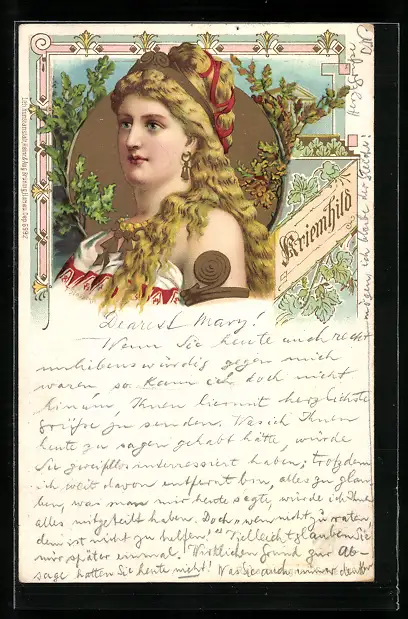 Kriemhild
Dearest Mary!
Wenn Sie heute auch recht
unliebenswürdig gegen mich
waren so kann ich doch nicht
hinum, Ihnen hiermit herzlichste
Grüße zu senden. Was ich Ihnen
heute zu sagen gehabt hätte, würde
Sie zweifellos interessiert haben; trotzdem
ich weit davon entfernt bin, alles zu glau-
ben, was man mir heute sagte, würde ich Ihnen
alles mitgeteilt haben. Doch „wem nicht zu raten,
dem ist nicht zu helfen!" Vielleicht glauben Sie
mir später einmal. Wirklichen Grund zur Ab-
sage hatten Sie heute nicht! Was Sie auch immer
mögen, ich bleibe der